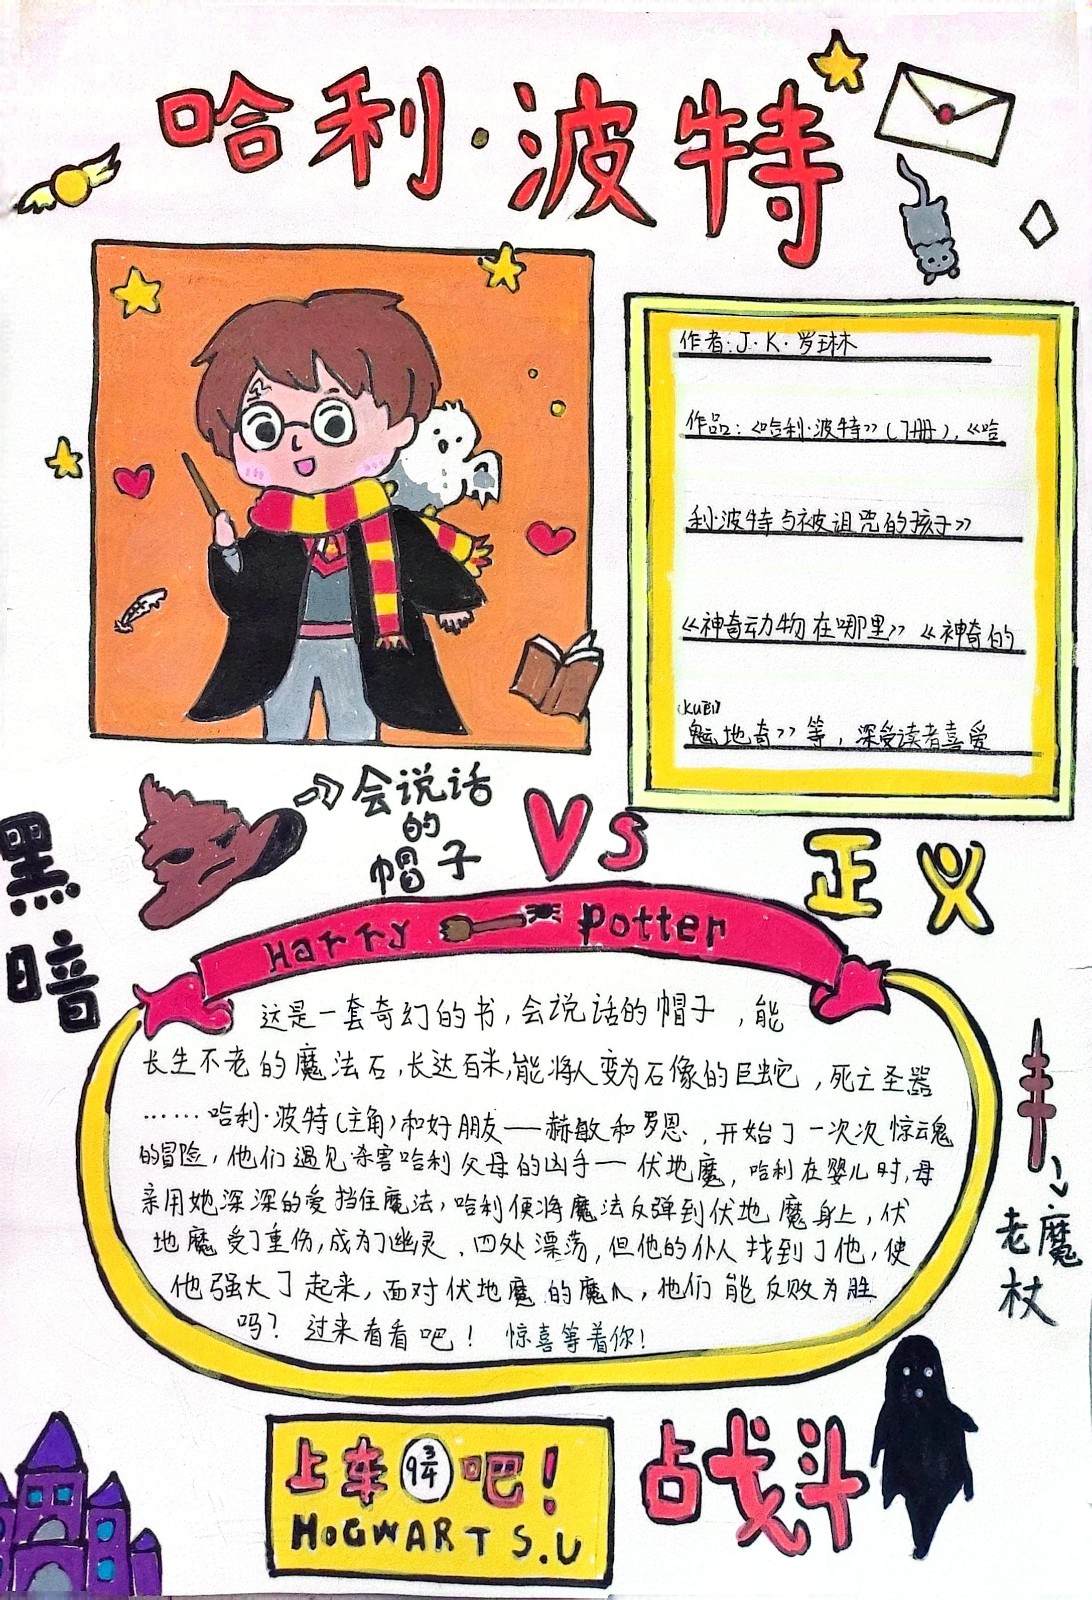 哈利·波特
作者:J·K·罗琳
作品:《哈利·波特》(7册),《哈
利·波特与被诅咒的孩子》
《神奇动物在哪里》《神奇的
魁地奇》等,深受读者喜爱
会说话
的
帽子
VS
黑暗
正义
Harry Potter
这是一套奇幻的书,会说话的帽子,能
长生不老的魔法石,长达百米,能将人变为石像的巨蛇,死亡圣器
……哈利·波特(主角)和好朋友——赫敏和罗恩,开始了一次次惊魂
的冒险,他们遇见杀害哈利父母的凶手—伏地魔,哈利在婴儿时,母
亲用她深深的爱挡住魔法,哈利便将魔法反弹到伏地魔身上,伏
地魔受了重伤,成为了幽灵,四处漂荡,但他的仆人找到了他,使
他强大了起来,面对伏地魔的魔爪,他们能反败为胜
吗?过来看看吧!惊喜等着你!
老魔
杖
上车9¾吧!
HOGWARTS.U
战斗